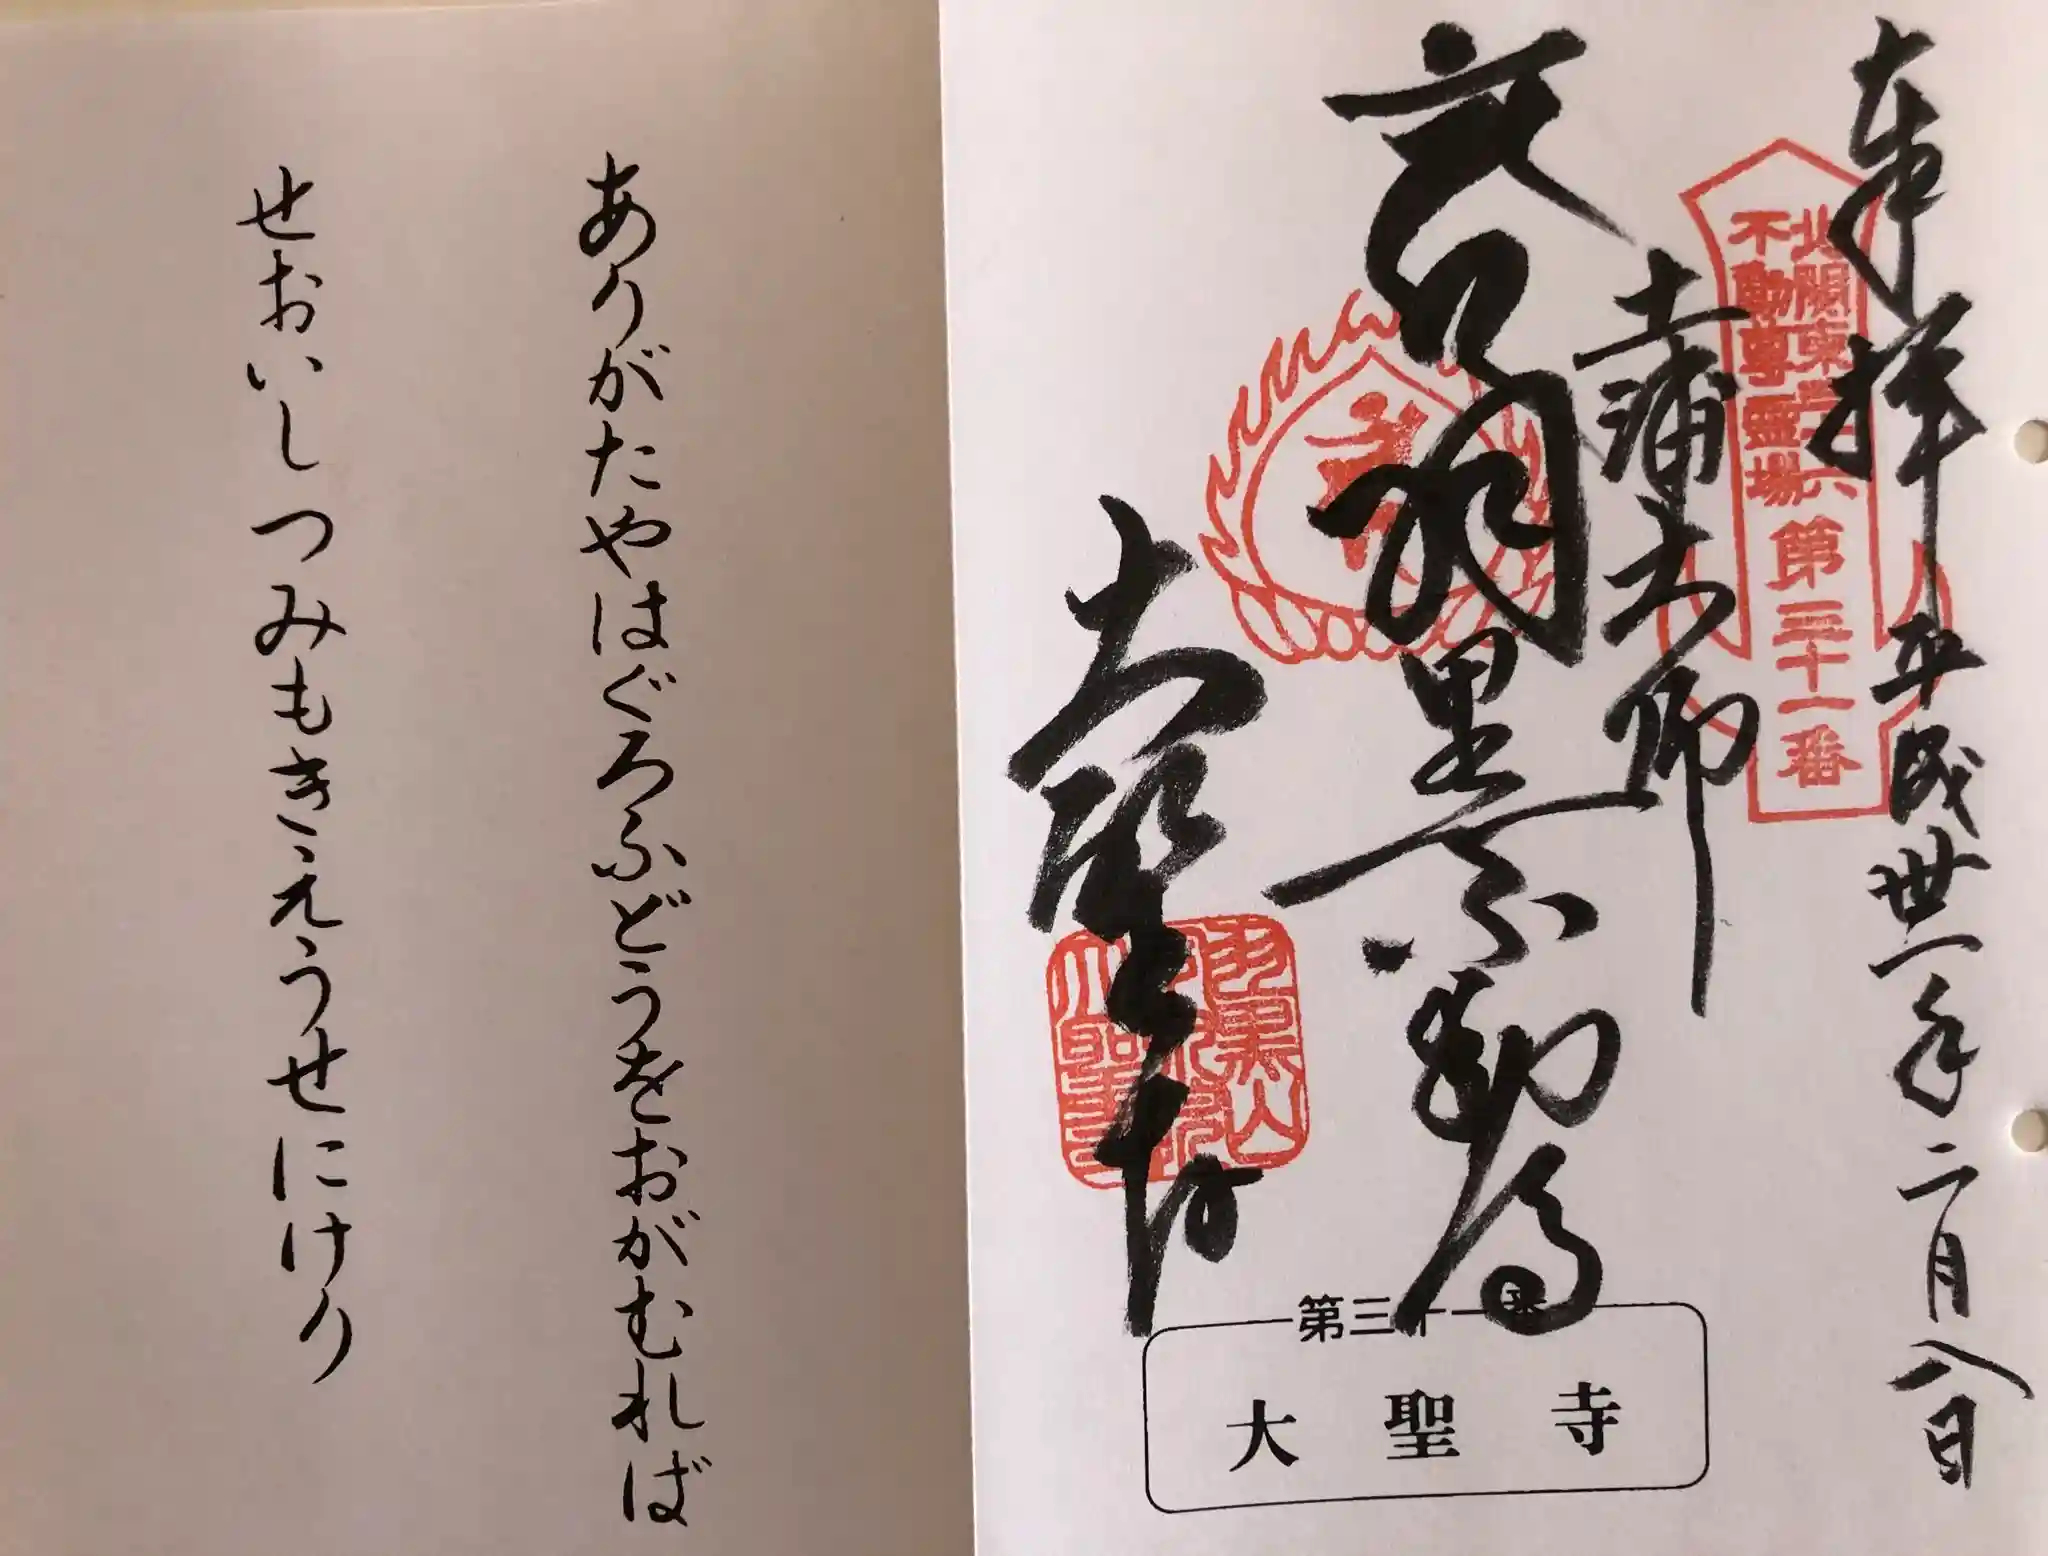 奉拝 平成卅一年二月八日
北関東三十六
不動尊霊場
第三十一番
土浦大師
羽黒不動尊
大聖寺
羽黒山
大聖寺
第三十一番
大聖寺
ありがたやはぐろふどうをおがむれば
せおいしつみもきえうせにけり